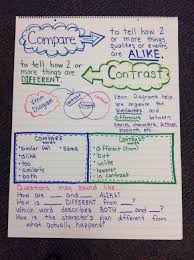 Compare
to tell how 2
or more things
qualities or events
are ALIKE.
to tell how 2
or more things are
DIFFERENT.
Contrast
Venn Diagram
Venn Diagrams help
you organize the
similarities and
differences between
stories, characters, settings
COMPARE
words
• similar (to)
• same
• alike
• too
• similarly
• both
CONTRAST
words
• different (from)
• but
• unlike
• however
• in contrast
Questions may sound like...
How are ___ and ___ ALIKE?
How is ___ DIFFERENT from ___?
Which word describes BOTH ___ and ___?
How is the character's plan different from
what actually happens?